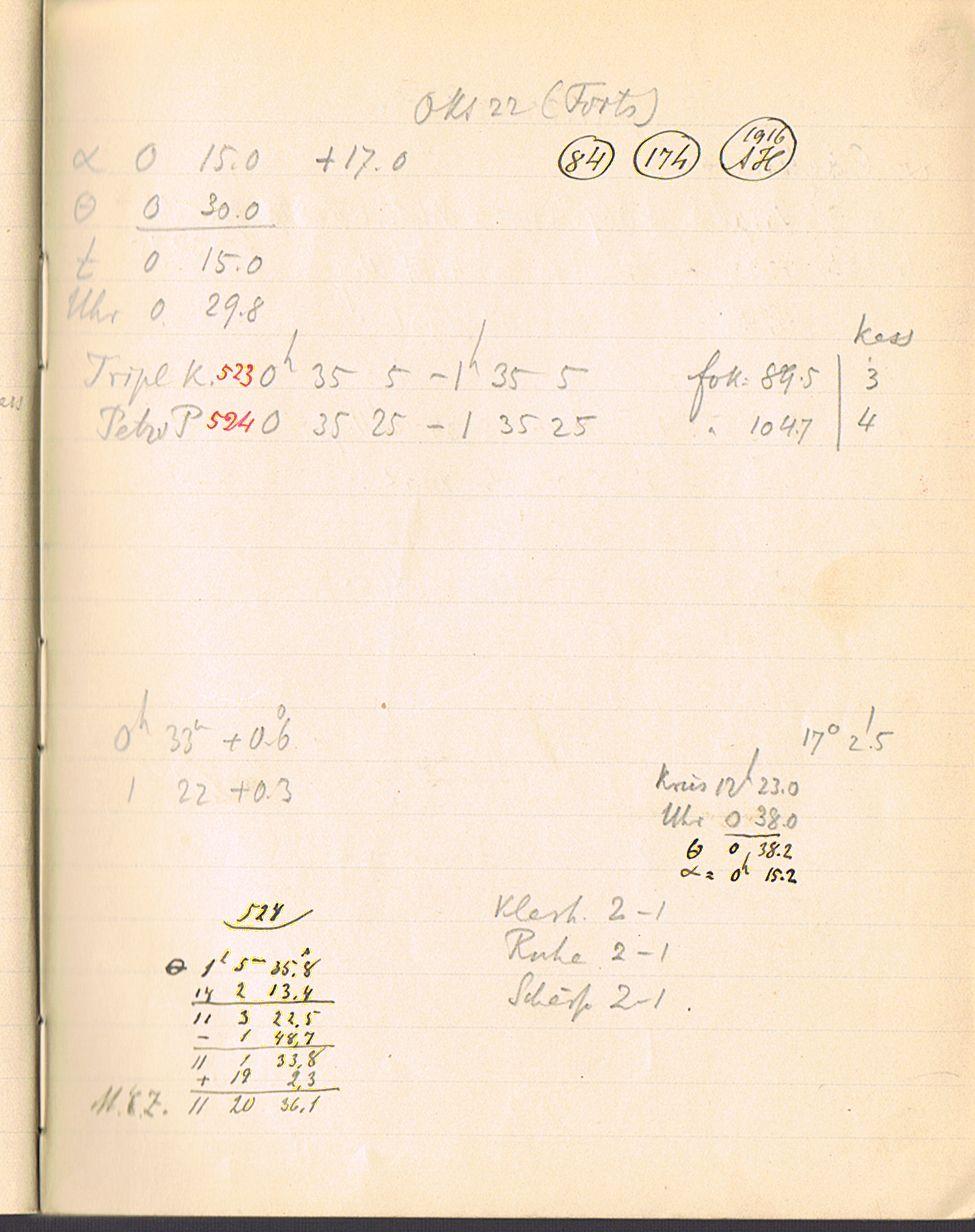 Okt 22 (Forts)
α 0 15.0 +17.0
84 174 1916 AH
θ 0 30.0
t 0 15.0
Uhr 0 29.8
kass
Tripl K. 523 0h 35 5 - 1h 35 5 fok: 89.5 3
Petzv P 524 0 35 25 - 1 35 25 " 104.7 4
0h 33m +0.6
1 22 +0.3
17° 2'.5
Kreis 12h 23.0
Uhr 0 38.0
θ 0 38.2
α = 0h 15.2
524
Klarh. 2-1
Ruhe 2-1
Schärfe 2-1.
θ 1h 5m 35.8s
14 2 13.4
11 3 22.5
- 1 48.7
11 1 33.8
+ 19 2.3
M.E.Z. 11 20 36.1